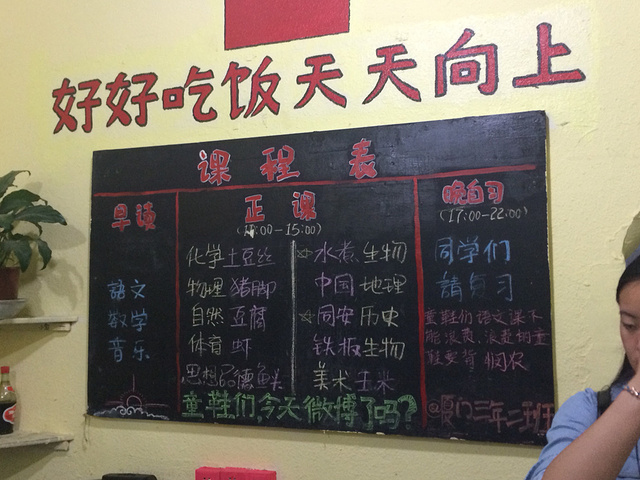 好好吃饭天天向上
课程表
早读
语文
数学
音乐
正课
化学土豆丝
物理猪脚
自然豆腐
体育虾
思想品德鱼头
水煮生物
中国地理
同安历史
铁板生物
美术玉米
童鞋们,今天微博了吗?
晚自习
(17:00-22:00)
同学们
請复习
童鞋们语文课不
能浪费.浪费的童
鞋要背悯农
@厦门三年二班